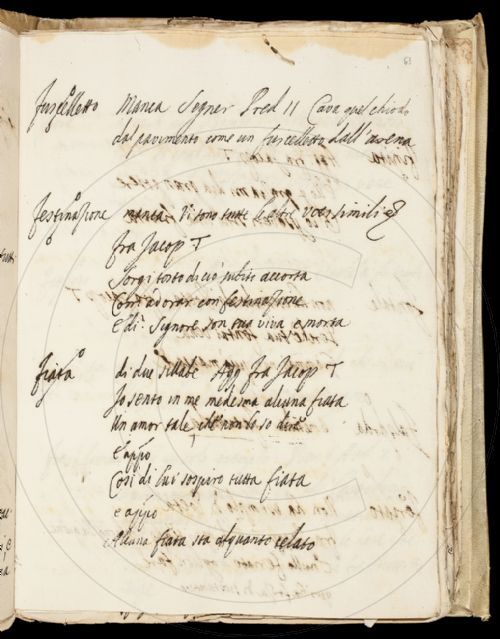 63
fuscelletto Manca Segner Pred II Cava quel chiodo
dal pavimento come un fuscelletto dall'arena
festinazione manca Vi sono tutte le altre voci simili
fra Jacop T
Sorgi tosto di ciò subito accorta
Corri adorar con festinazione
E di Signore son tua viva e morta
fiata di due sillabe Agg fra Jacop T
Jo sento in me medesma alcuna fiata
Un amor tale che non lo so dire
E appo
Così di lui sospiro tutta fiata
e appo
Alcuna fiata sta alquanto celato